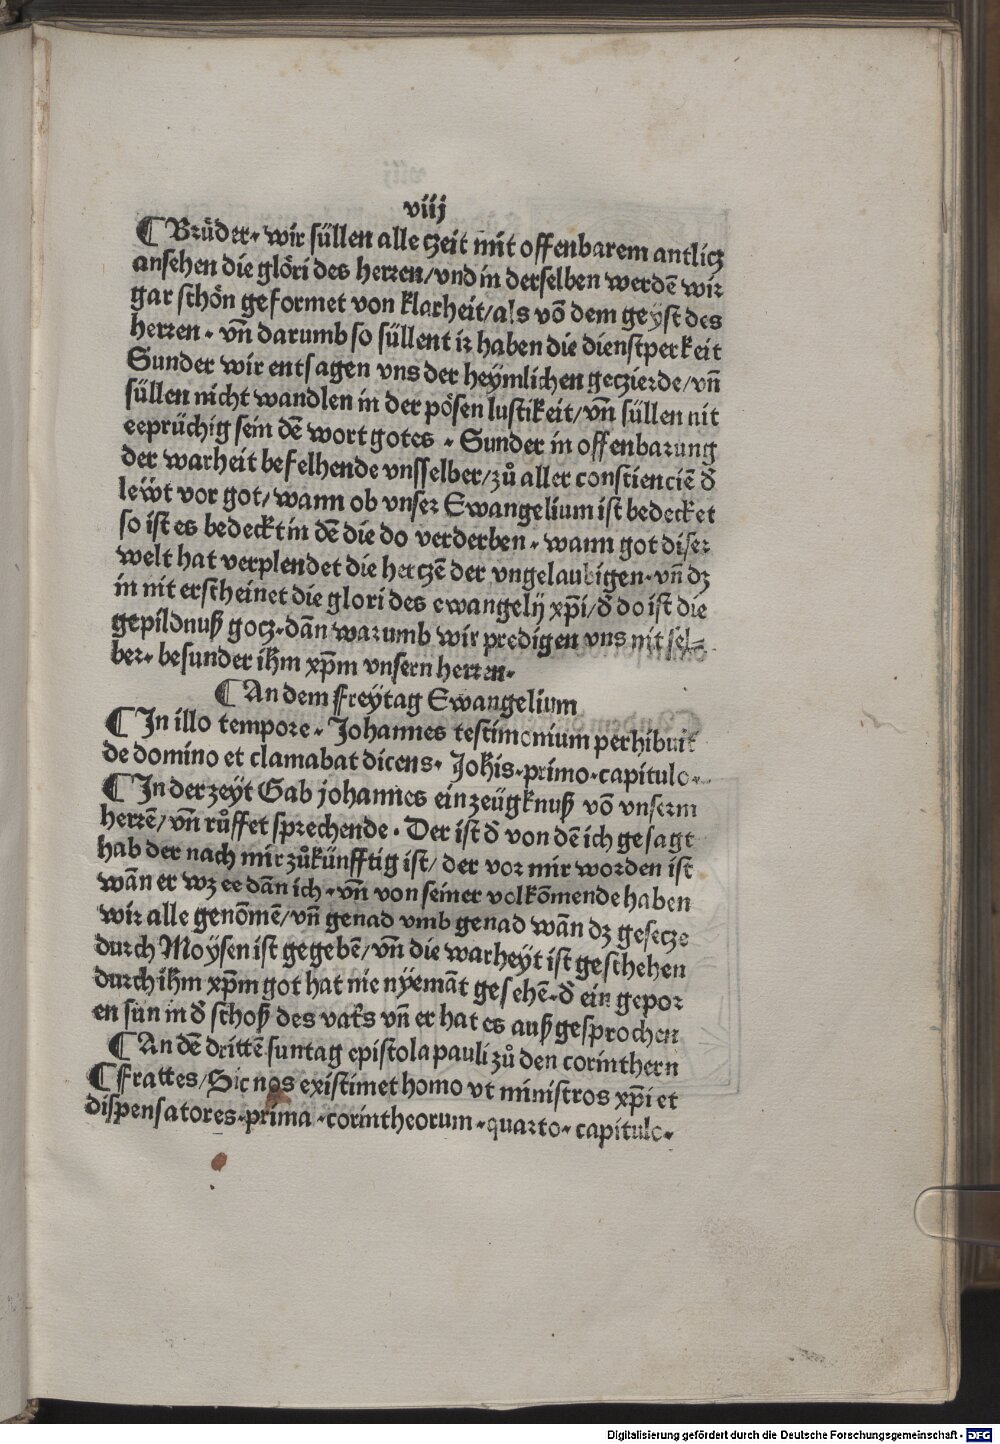 viij
¶ Bruͤder. wir süllen alle czeit mit offenbarem antlicz
ansehen die glöri des herren/vnd in derselben werdē wir
gar schön geformet von klarheit/als vō dem geyst des
herren. vn̄ darumb so süllent ir haben die dienstperkeit
Sunder wir entsagen vns der heÿmlichen geczierde/vn̄
süllen nicht wandlen in der pösen lustikeit/vn̄ süllen nit
eeprüchig sein dē wort gotes. Sunder in offenbarung
der warheit befelhende vnsselber/zů aller constienciē đ
lewt vor got/wann ob vnser Ewangelium ist bedecket
so ist es bedeckt in dē die do verderben. wann got diser
welt hat verplendet die herczē der vngelaubigen. vn̄ dz
in nit erscheinet die glori des ewangelÿ xp̄i/đ do ist die
gepildnuß gocz. dan̄ warumb wir predigen vns nit sel⸗
ber. besunder ih̄m xp̄m vnsern herren.
¶ An dem freÿtag Ewangelium
¶ In illo tempore. Johannes testimonium perhibuit
de domino et clamabat dicens. Joh̄is. primo. capitulo.
¶ In der zeÿt Gab johannes ein zeügknuß vō vnserm
herrē/vn̄ růffet sprechende. Der ist đ von dē ich gesagt
hab der nach mir zůkünfftig ist/ der vor mir worden ist
wan̄ er wz ee dan̄ ich. vn̄ von seiner volkōmende haben
wir alle genōmē/vn̄ genad vmb genad wan̄ dz gesecze
durch Moÿsen ist gegebē/vn̄ die warheÿt ist geschehen
durch ih̄m xp̄m got hat nie nÿemāt gesehē. đ ein gepor
en sun in đ schoß des vat̉s vn̄ er hat es auß gesprochen
¶ An dē drittē suntag epistola pauli zů den corinthern
¶ Frattes/Sic nos existimet homo vt ministros xp̄i et
dispensatores. prima. corintheorum. quarto. capitulo.
Digitalisierung gefördert durch die Deutsche Forschungsgemeinschaft - DFG